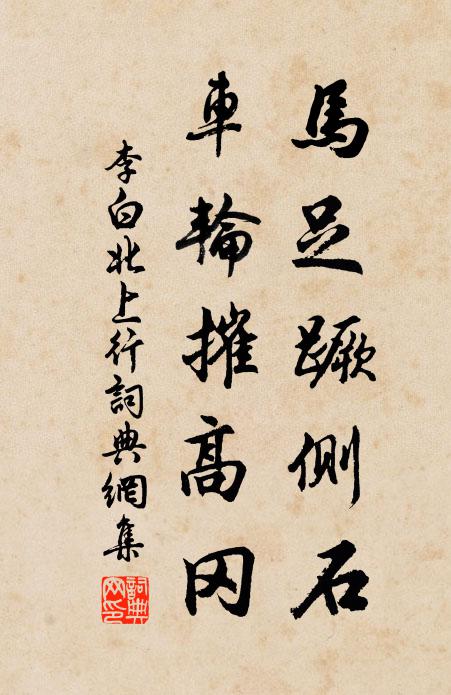 馬足蹶側石
車輪摧高冈
李白北上行詞典網集
詞典
网印